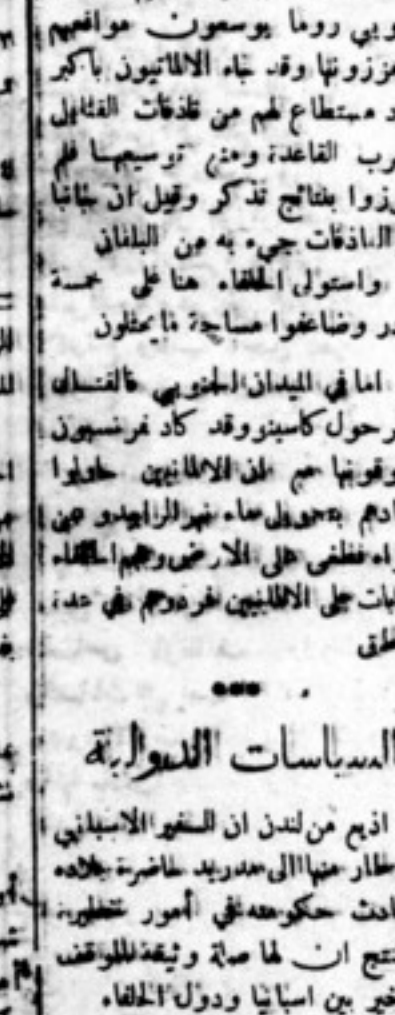 وبي روما يوسعون مواقعهم
يعززونها وقد جاء الالمانيون باكبر
د مستطاع لهم من قاذفات القنابل
رب القاعدة ومنى توسيعها فلم
رزوا بنتائج تذكر وقيل ان جانبا
القاذفات جيء به من البلقان
واستولى الحلفاء هنا على خمسة
در وضاعفوا مساحة ما يحتلون
اما في الميدان الجنوبي فالقتال
ر حول كاسينو وقد كاد فرنسيون
وقونها مع ان الالمانيين حاولوا
ادهم بتحويل ماء نهر الرابيدو عن
راه فطغى على الارض وهجم الحلفاء
ات على الالمانيين فردوهم في عدة
طق
السياسات الدولية
اذيع من لندن ان السفير الاسباني
طار منها الى مدريد حاضرة بلاده
ادث حكومته في أمور خطيرة
نتج ان لها صلة وثيقة بالموقف
خير بين اسبانيا ودول الحلفاء